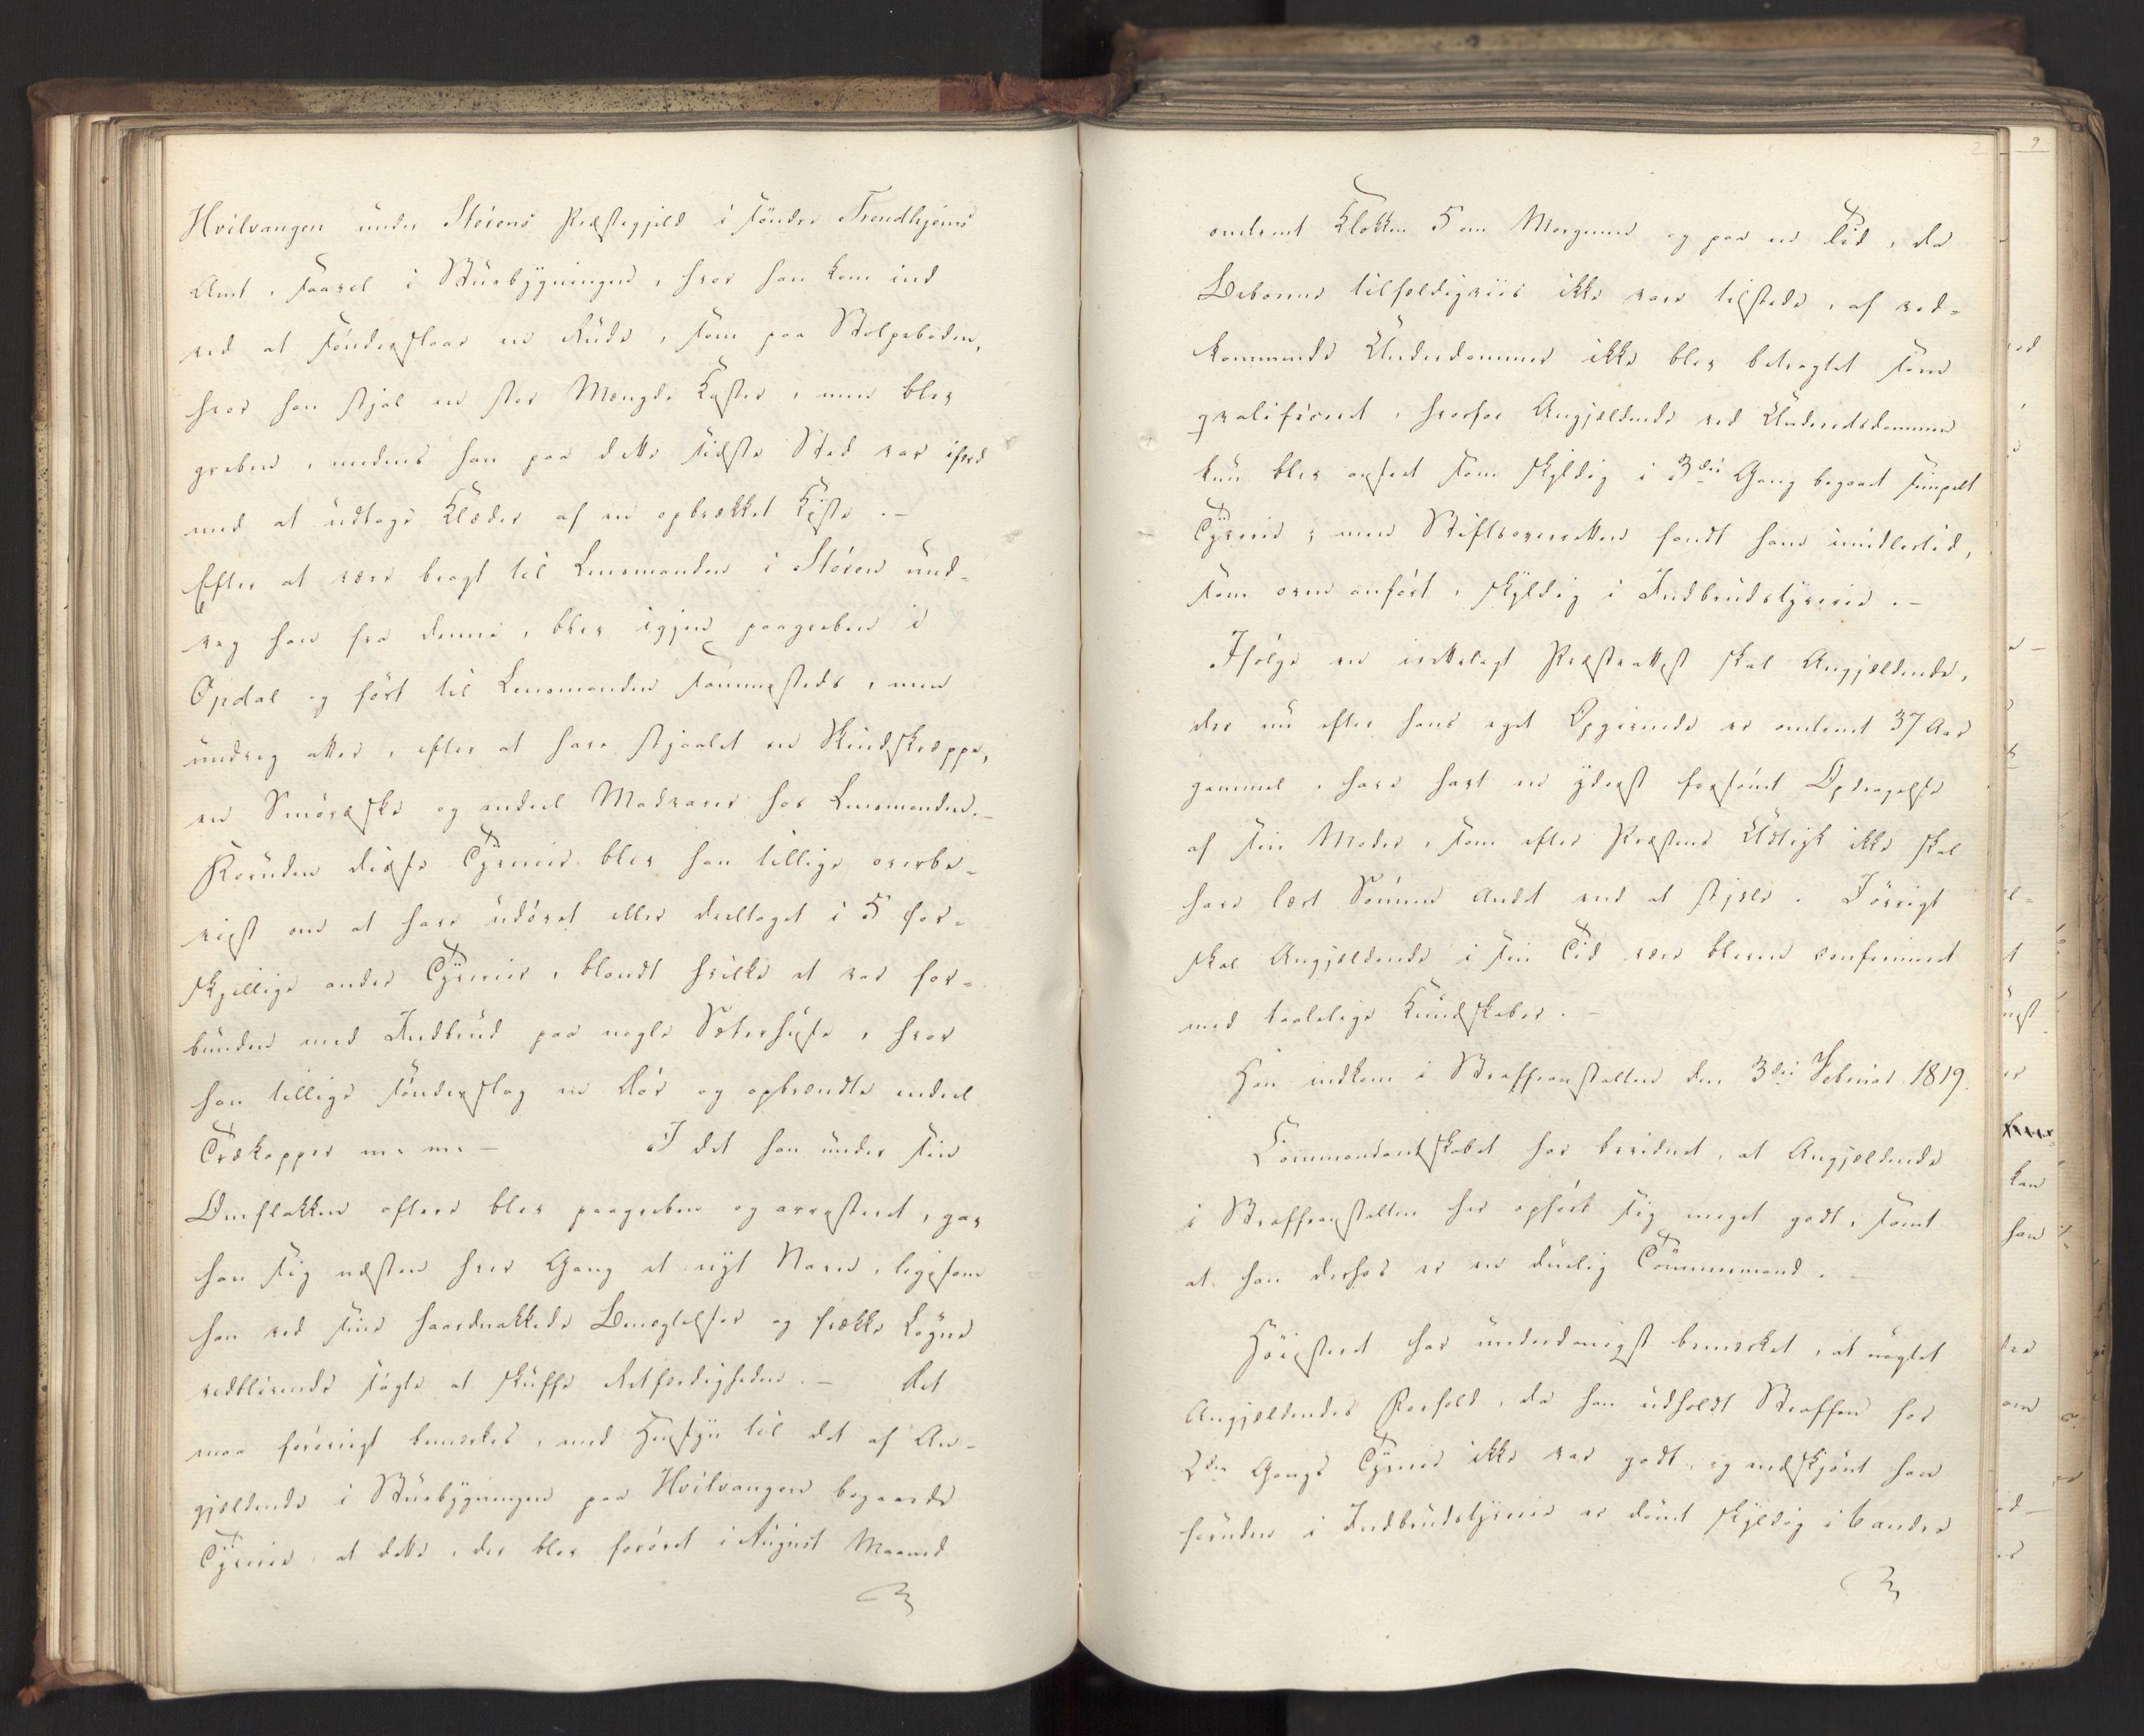 Hvilvangen under Stórens Præstegjeld i söndre Trondhjems
Amt, saavel i Stuebygningen, hvor han kom ind
ved at sönderslaae en Rude, som paa Stolpeboden,
hvor han stjal en stor Mængde Kister, men blev
greben, medens han paa dette sidste Sted var ifærd
med at udtage Klæder af en opbrækket Kiste. –
Efter at være bragt til Lensmanden i Stören und-
veg han fra denne, blev igjen paagreben i
Opdal og fört til Lensmanden sammesteds, men
undveg atter, efter at have stjaalet en Skindskreppe,
en Smöræske og endeel Madvarer hos Lensmanden. –
Foruden disse Tyverier blev han tillige overbe-
viist om at have udövet eller deeltaget i 5 for-
skjellige andre Tyverier, blandt hvilke et var for-
bunden med Indbrud paa nogle Sæterhuse, hvor
han tillige sönderslog en Dör og opbrændte endeel
Trækopper m: m: – I det han under sin
Omflakken oftere blev paagreben og arresteret, gav
han sig næsten hver Gang et nyt Navn, ligesom
han ved sine haardnakkede Benægtelser og frække Logne
vedblivende sögte at skuffe Retfærdigheden. – Det
maa forövrigt bemærkes, med Hensyn til det af An-
gjeldende i Stuebygningen paa Hvilvangen begaaede
Tyverie, at dette, der blev forövet i August Maaned
omtrent Klokken 5 om Morgenen og paa en Tid, da
Beboerne tilfældigviis ikke vare tilstede, af ved-
kommende Underdommer ikke blev betragtet som
qvalificeret, hvorfor Angjeldende ved Underretsdommen
kun blev anseet som skyldig i 3die Gang begaaet simpelt
Tyverie; men Stiftsoverretten fandt ham imidlertid,
som oven anfört, skyldig i Indbrudstyverie. –
Ifölge en irettelagt Præsteattest skal Angjeldende,
der nu efter hans eget Opgivende er omtrent 37 Aar
gammel, have havt en yderst forsömt Opdragelse
af sin Moder, som efter Præstens Udtryk ikke skal
have lært Sönnen Andet end at stjele. Iövrigt
skal Angjeldende i sin Tid være bleven confirmeret
med taalelige Kundskaber. –
Han indkom i Straffeanstalten den 3die Februar 1819.
Commandantskabet har bevidnet, at Angjeldende
i Straffeanstalten har opfört sig meget godt, samt
at han derhos er en duelig Tömmermand. –
Höiesteret har underdanigst bemærket, at uagtet
Angjeldendes Forhold, da han udholdt Straffen for
2den Gangs Tyverie ikke var godt, og endskjönt han
foruden i Indbrudstyverie er dömt skyldig i 6 andre